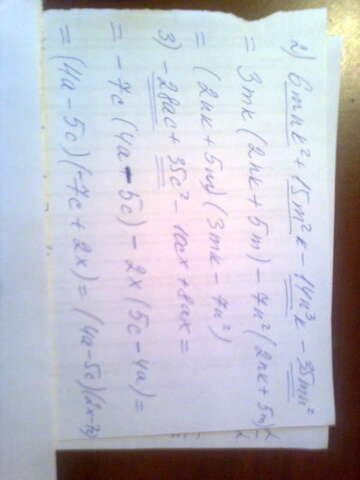 2) 6mnk² + 15m²k - 14n³k - 35mn²
= 3mk (2nk + 5m) - 7n² (2nk + 5m) =
= (2nk + 5m) (3mk - 7n²)
3) - 28ac + 35c² - 10cx + 8ax =
= - 7c (4a - 5c) - 2x (5c - 4a) =
= (4a - 5c) (-7c + 2x) = (4a - 5c) (2x - 7c)